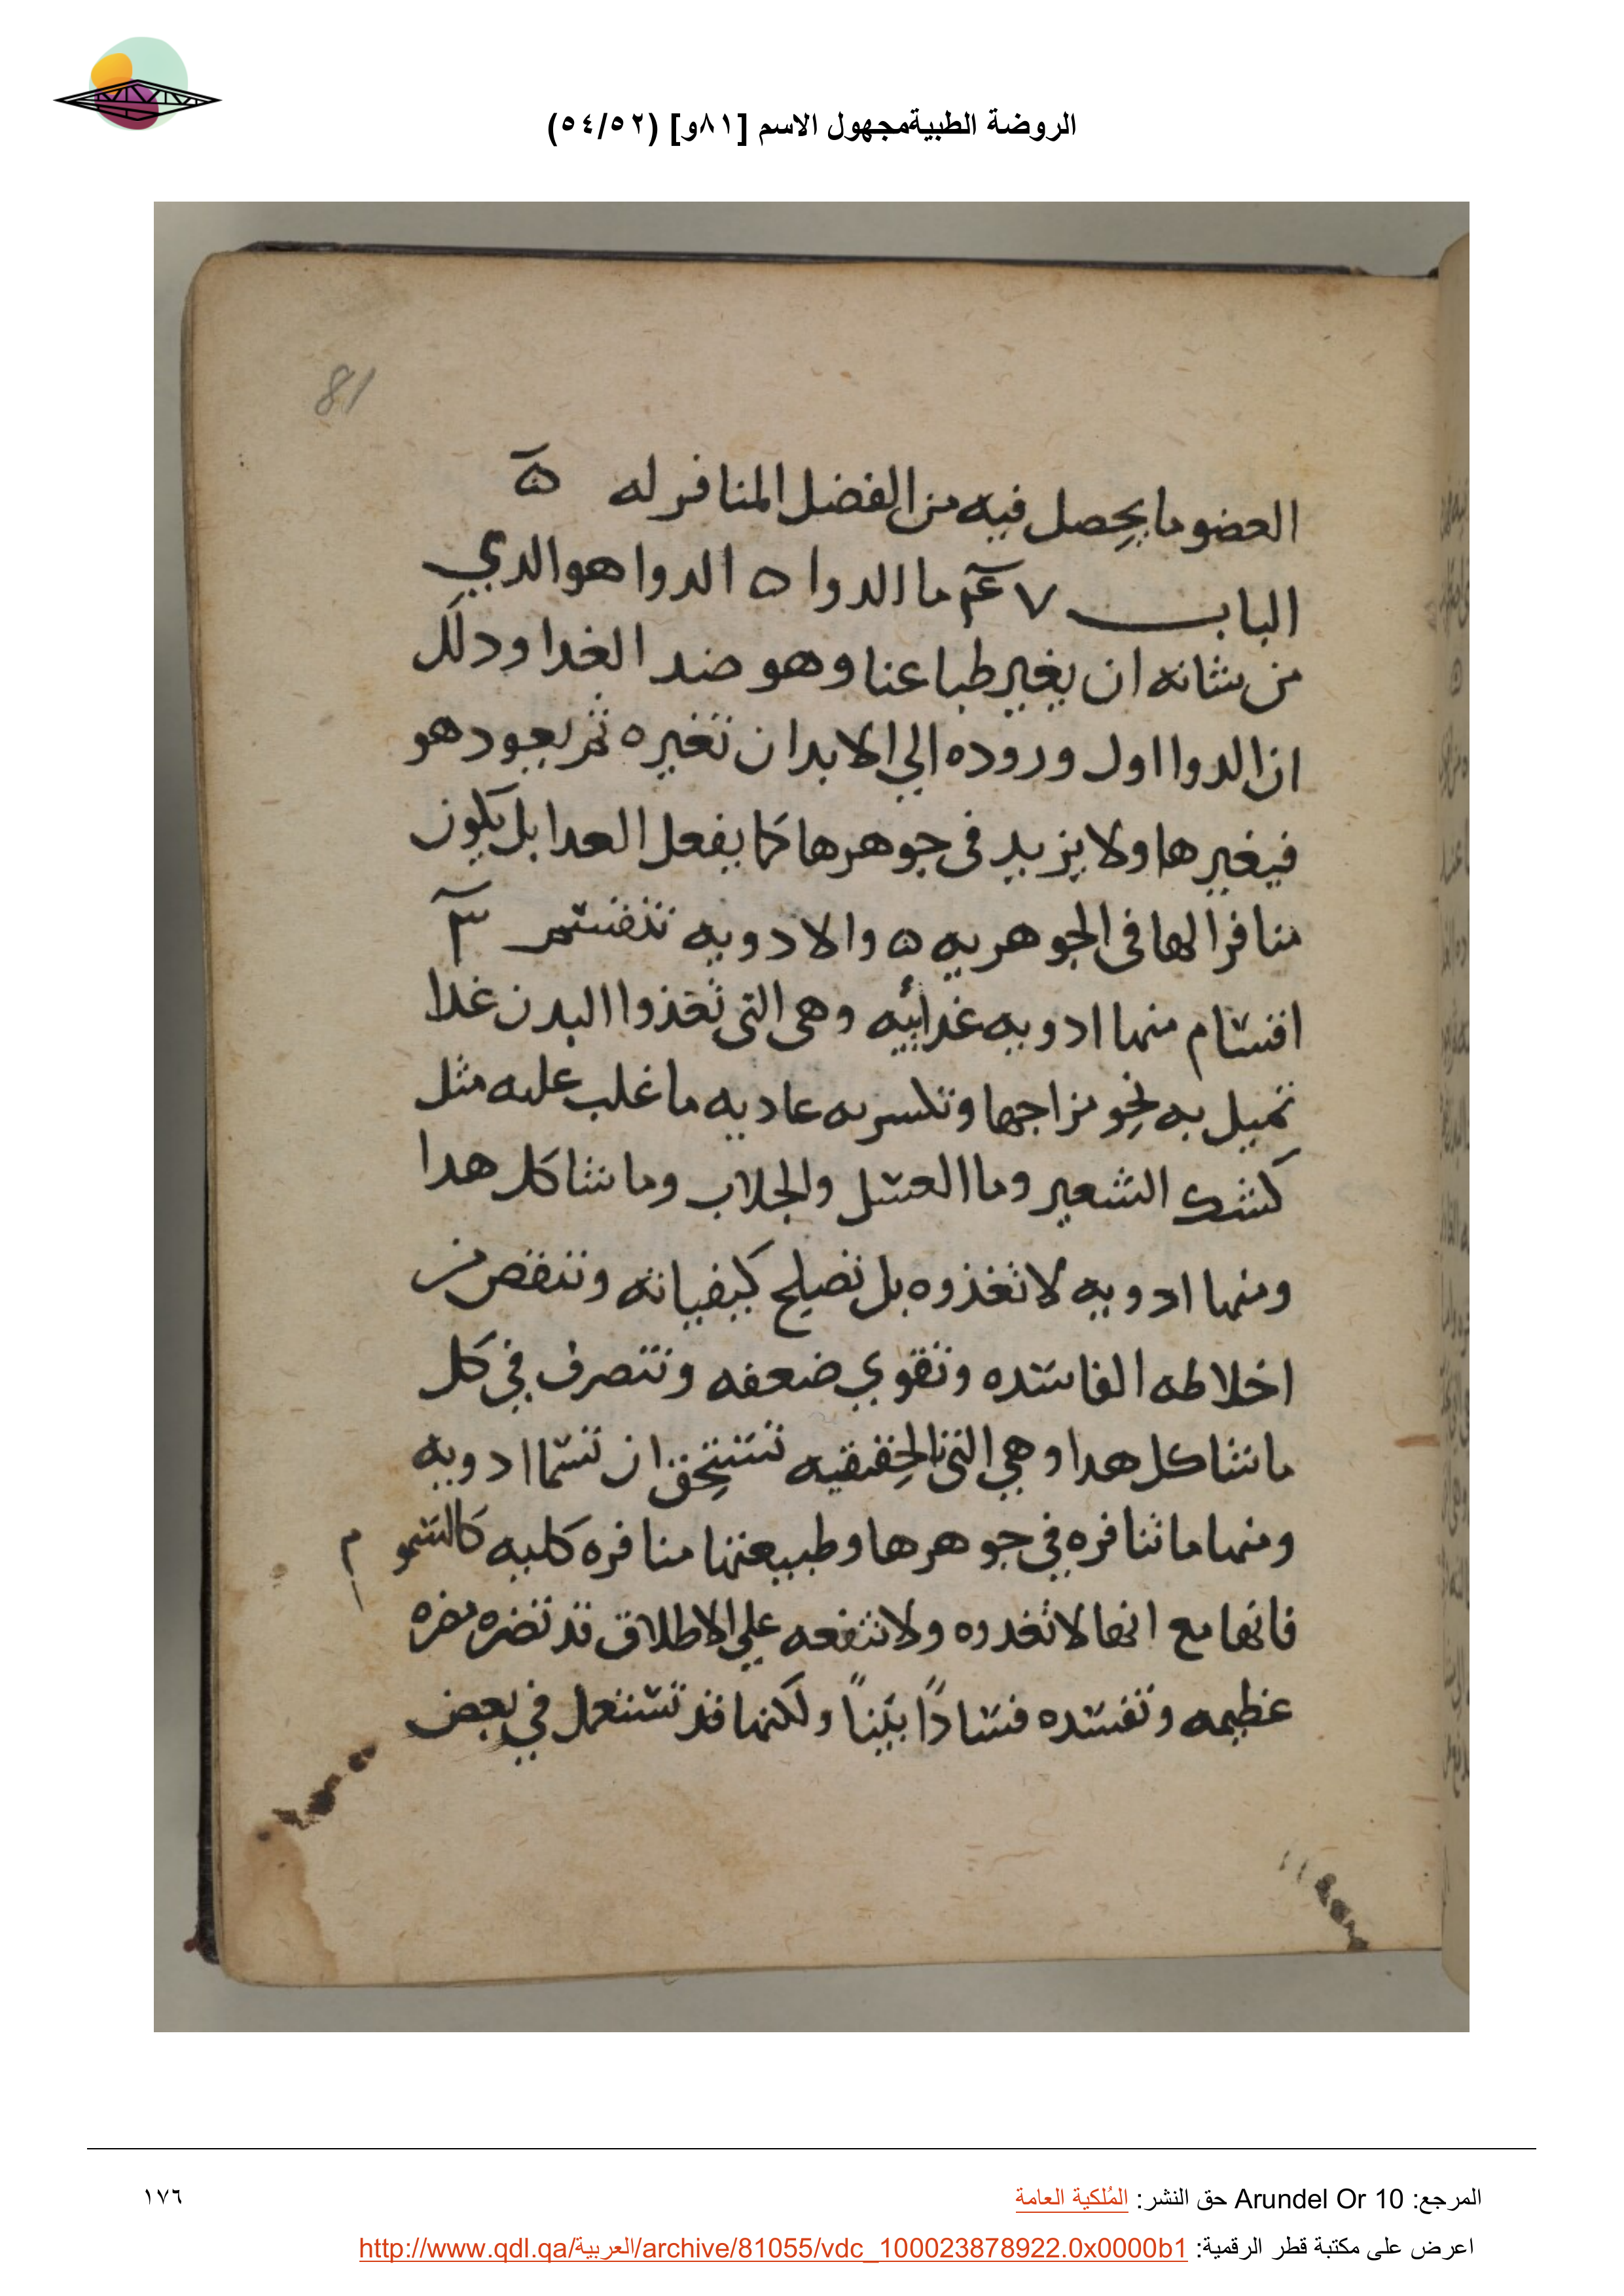 الروضة الطبيةمجهول الاسم [٨١و] (٥٤/٥٢)
81
العضو ما يحصل فيه من الفضل المنافر له ه
الباب ٧ ما الدوا ه الدوا هو الدي
من شانه ان يغير طباعنا وهو ضد الغدا ودلك
ان الدوا اول وروده الي الابدان تغيره ثم يعود هو
فيغيرها ولا يزيد فى جوهرها كما يفعل العدا بل يكون
منافرا لها فى الجوهريه ه والادويه تنقسم ٣
اقسام منها ادويه غدائيه وهى التى تغذوا البدن غدا
تميل به نحو مزاجها وتكسر به عاديه ما غلب عليه مثل
كشك الشعير وما العسل والجلاب وما شاكل هدا
ومنها ادويه لا تغذوه بل تصلح كيفياته وتنقص من
اخلاطه الفاسده وتقوي ضعفه وتتصرف في كل
ما شاكل هدا وهي التى بالحقيقيه تستحق ان تسما ادويه
ومنها ما تنافره في جوهرها وطبيعتها منافره كليه كالسموم
فانها مع انها لا تغدوه ولا تنفعه علي الاطلاق قد تضره مضره
عظيمه وتفسده فسادًا بيّنًا ولكنها قد تستعمل في بعض
المرجع: Arundel Or 10 حق النشر: المُلكية العامة
١٧٦
اعرض على مكتبة قطر الرقمية: http://www.qdl.qa/العربية/archive/81055/vdc_100023878922.0x0000b1